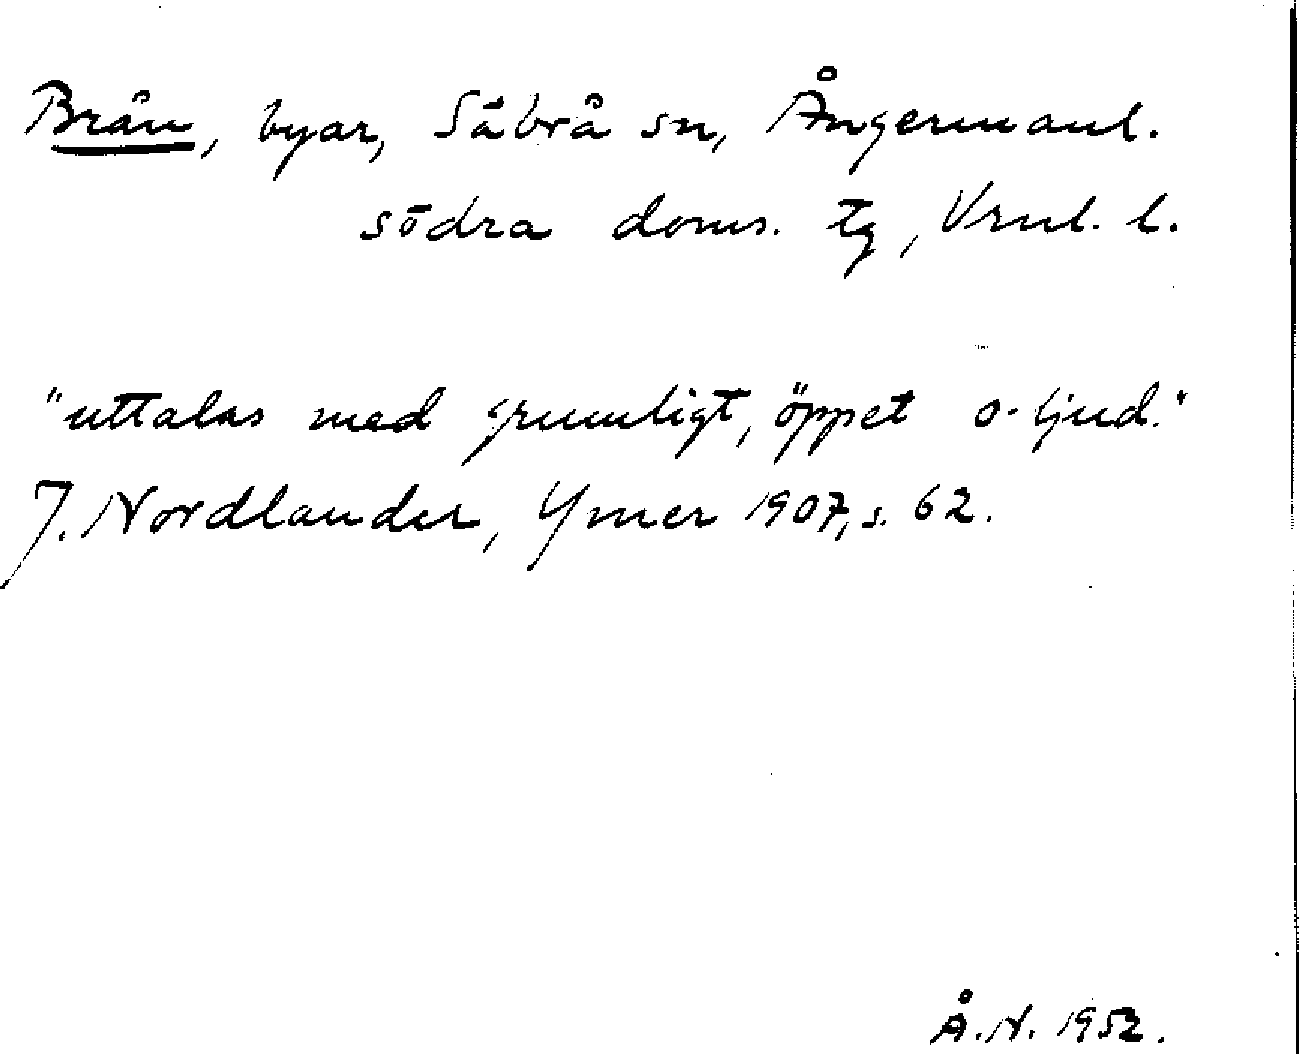 Brån, byar, Säbrå sn, Ångermanl.
södra doms. tg, Vrnl. l.
"uttalas med grumligt, öppet o-ljud."
J. Nordlander, Ymer 1907, s. 62.
Å.N. 1952.